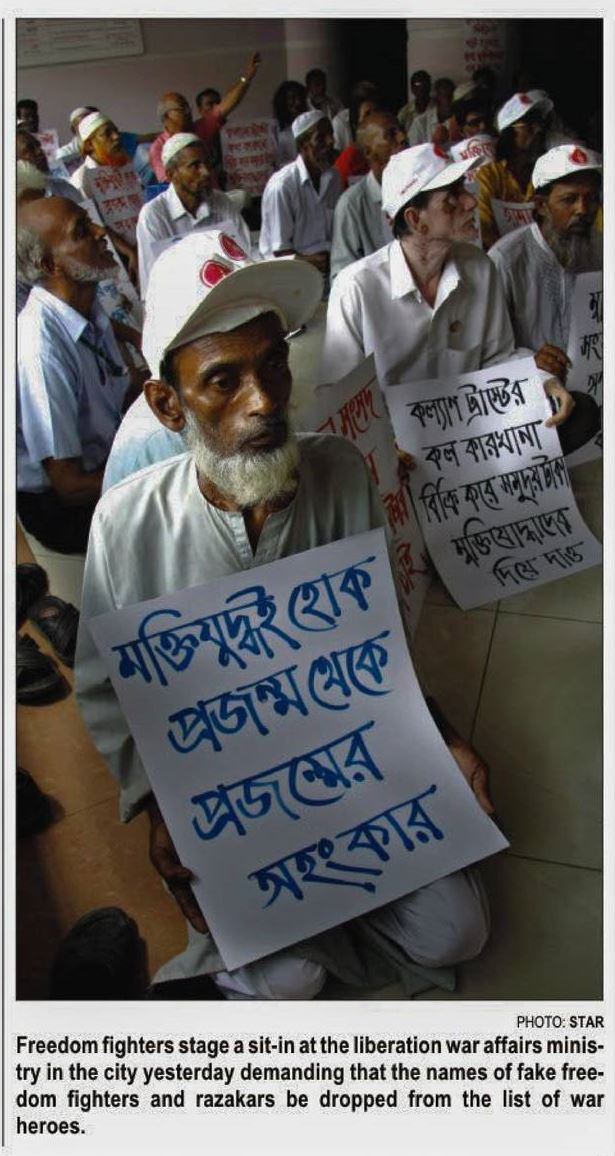 মুক্তিযুদ্ধই হোক
প্রজন্ম থেকে
প্রজন্মের
অহংকার
কল্যাণ ট্রাস্টের
কল কারখানা
বিক্রি করে সমুদয় টাকা
মুক্তিযোদ্ধাদের
দিয়ে দাও
সংসদ
PHOTO: STAR
Freedom fighters stage a sit-in at the liberation war affairs minis-
try in the city yesterday demanding that the names of fake free-
dom fighters and razakars be dropped from the list of war
heroes.